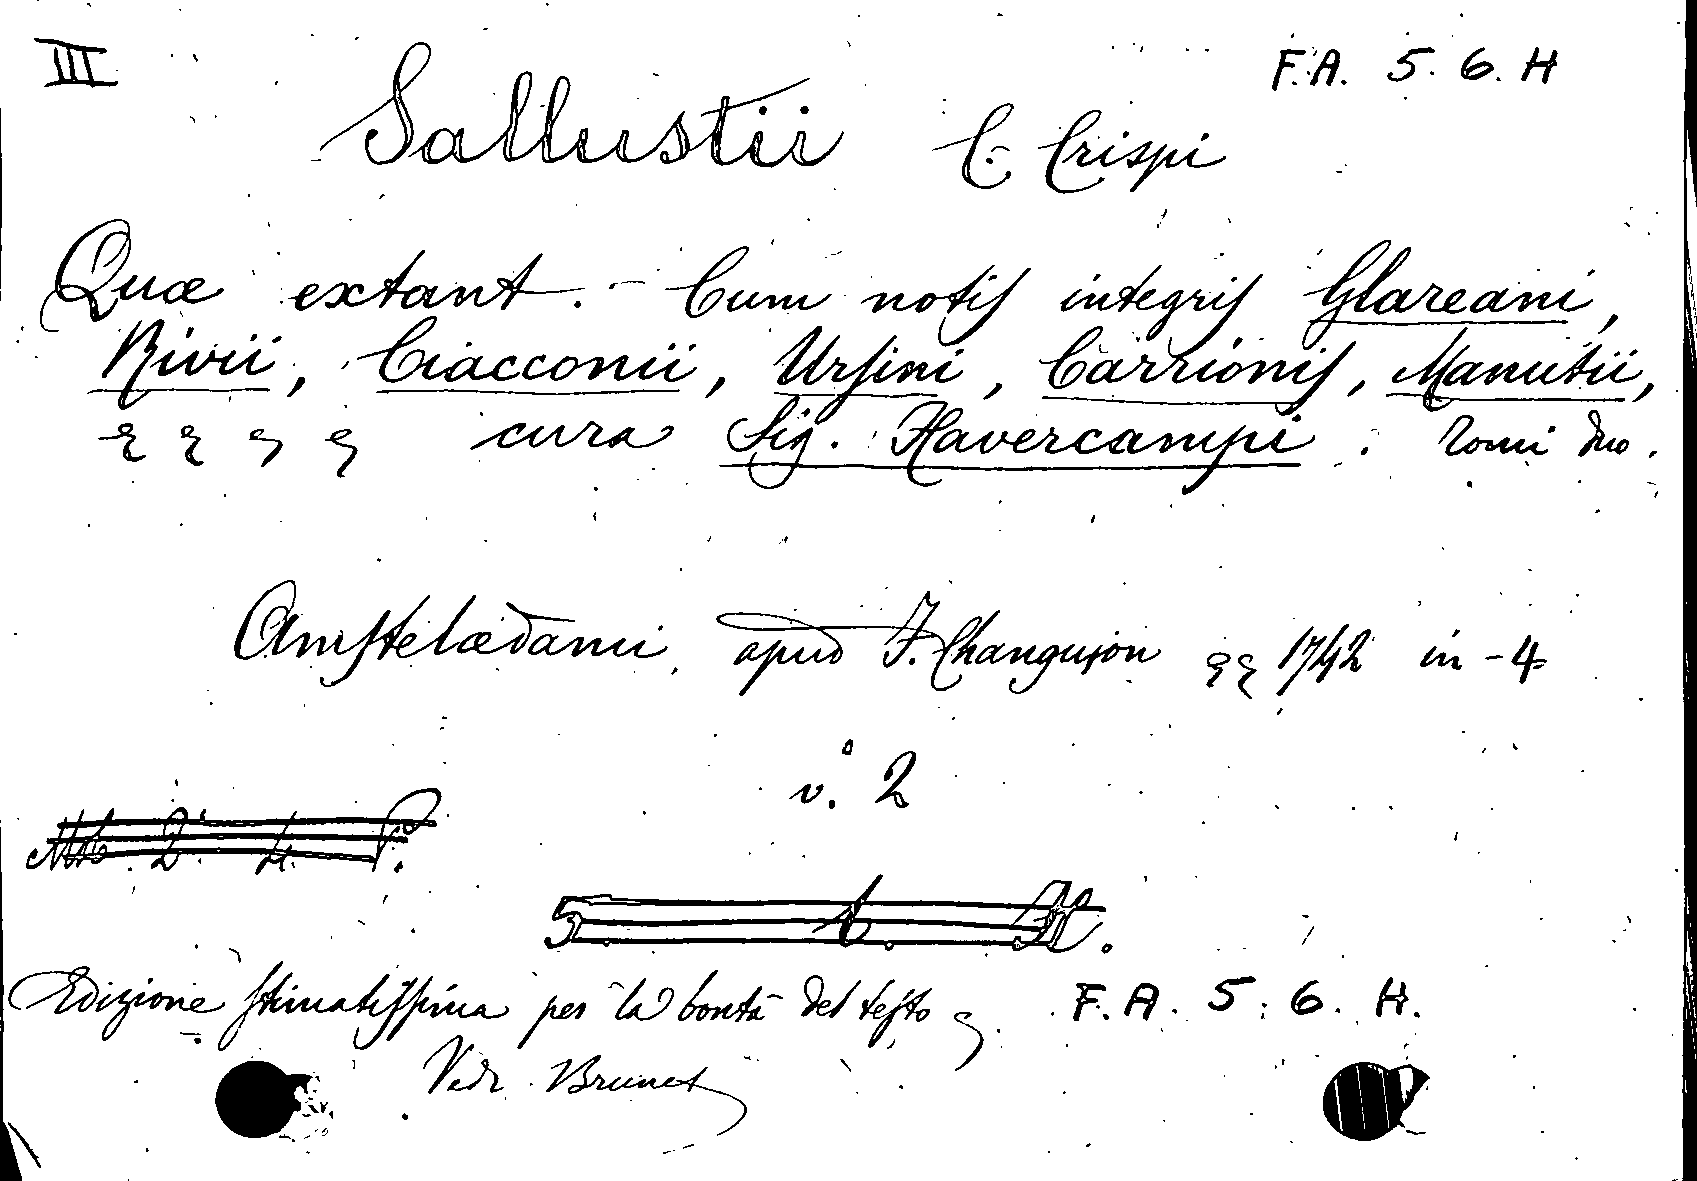 III
F.A. 5. 6. H
Sallustii C. Crispi
Quæ extant. - Cum notis integris Glareani,
Rivii, Ciacconii, Ursini, Carrionis, Manutii,
cura Sig. Havercampi. Tomi duo.
Amstelædami, apud F. Changujon 1742 in-4
v. 2
5. H.
Edizione stimatissima per la bontà del testo F.A. 5. 6. H.
Vedi Brunet